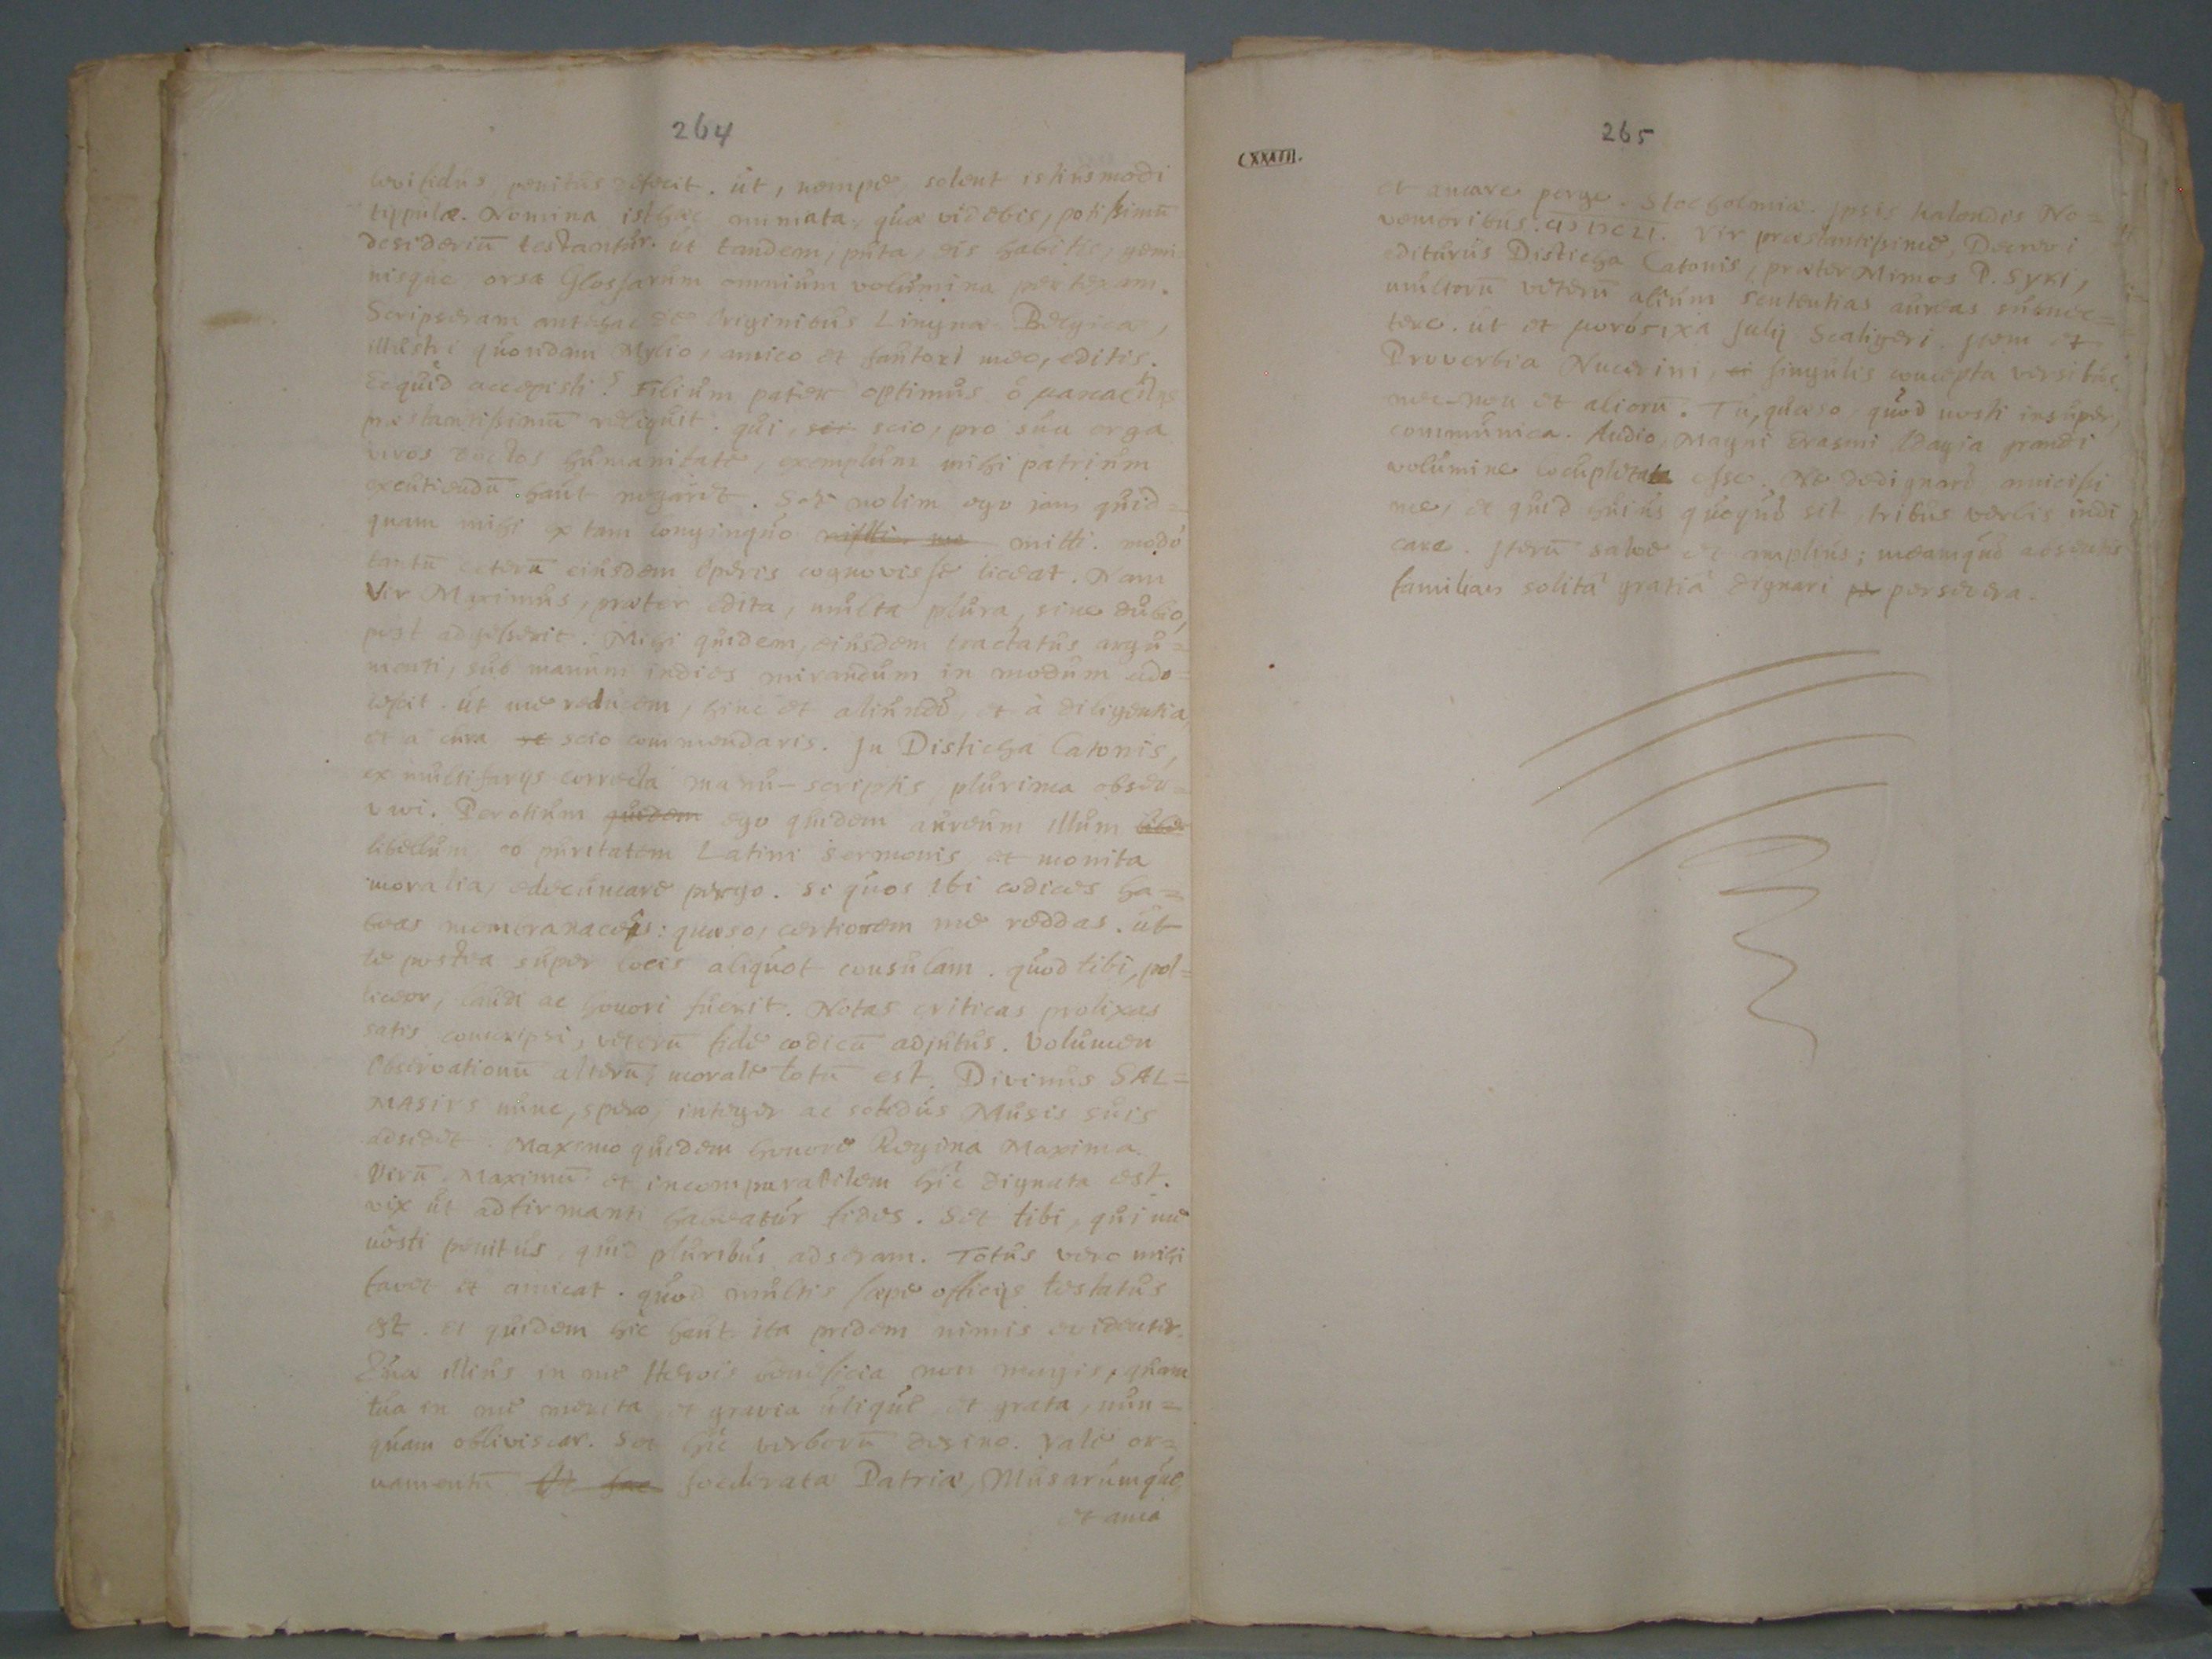 264
penitus defecit. ut, nempe, solent istiusmodi
tippulæ. Nomina isthæc nummata, quæ videbis, potissimū
desideriū testantur. ut tandem, puta, eis habitis, gemi
nisque, orsa Glossarum omnium volumina pertexam.
Scripseram antehac de Originibus Linguæ Belgicæ,
illustri quondam Mylio, amico et fautori meo, editis.
Ecquid accepisti? Filium pater optimus ὁ μακαρίτης
præstantissimū reliquit. qui, scio, pro sua erga
viros doctos humanitate, exemplum mihi patrium
excutiendū haut negarit. Set nolim ego jam quid=
quam mihi ex tam longinquo mitti. modo
tantū ceterū eiusdem Operis cognovisse liceat. Nam
Vir Maximus, præter edita, multa plura, sine dubio,
post adgesserit. Mihi quidem, eiusdem tractatus argu=
menti, sub manum indies mirandum in modum ado=
levit. ut me reducem, hinc et aliunde, et à diligentia,
et a cura scio commendaris. In Disticha Catonis,
ex multifarijs correcta manu-scriptis, plurima obser=
vavi. Perotium quidem ego quidem aureum illum
libellum, ob puritatem Latini sermonis, et monita
moralia, edecumare pergo. Si quos ibi codices ha=
beas membranaceos: quæso, certiorem me reddas. ut
te postea super locis aliquot consulam. quod tibi, pol=
liceor, laudi ac honori fuerit. Notas criticas prolixas
satis conscripsi, veterū fide codicū adjutus. Volumen
Observationū alterū, morale totū est. Divinus SAL=
MASIVS nunc, spero, integer ac solidus Musis suis
adsidet. Maxsimo quidem honore Regina Maxima
Virū Maximū et incomparabilem hîc dignata est.
vix ut adfirmanti habeatur fides. Set tibi, qui me
nosti penitus, quid pluribus adseram. Totus vero mihi
favet et amicat. quod multis sæpe officijs testatus
est. et quidem hîc haut ita pridem nimis evidenter.
illius in me Herois beneficia non magis, quam
tua in me merita, et gravia utique, et grata, nun=
quam obliviscar. Set hîc verborū desino. Vale or=
namentū foederatæ Patriæ, Musarumque,
et ama
265
CXXVIII.
et amare perge. Stocholmiæ. Ipsis Kalendis No=
vembribus. Vir præstantissime, Decrevi
editurus Disticha Catonis, præter Mimos P. Syri,
multorū veterū alium sententias aureas subnec=
tere. ut et μονόστιχα Julij Scaligeri. Item et
Proverbia Nucerini, singulis concepta versibus.
nec-non et aliorū. Tu, quæso, quod nosti insuper,
communica. Audio, Magni Erasmi Adagia grandi
volumine locupletata esse. Ne dedignare amicissi
me, et quid huius quoque sit, tribus verbis indi
care. Iterū salve et amplius; meamque absentis
familiam solitâ gratiâ dignari persevera.